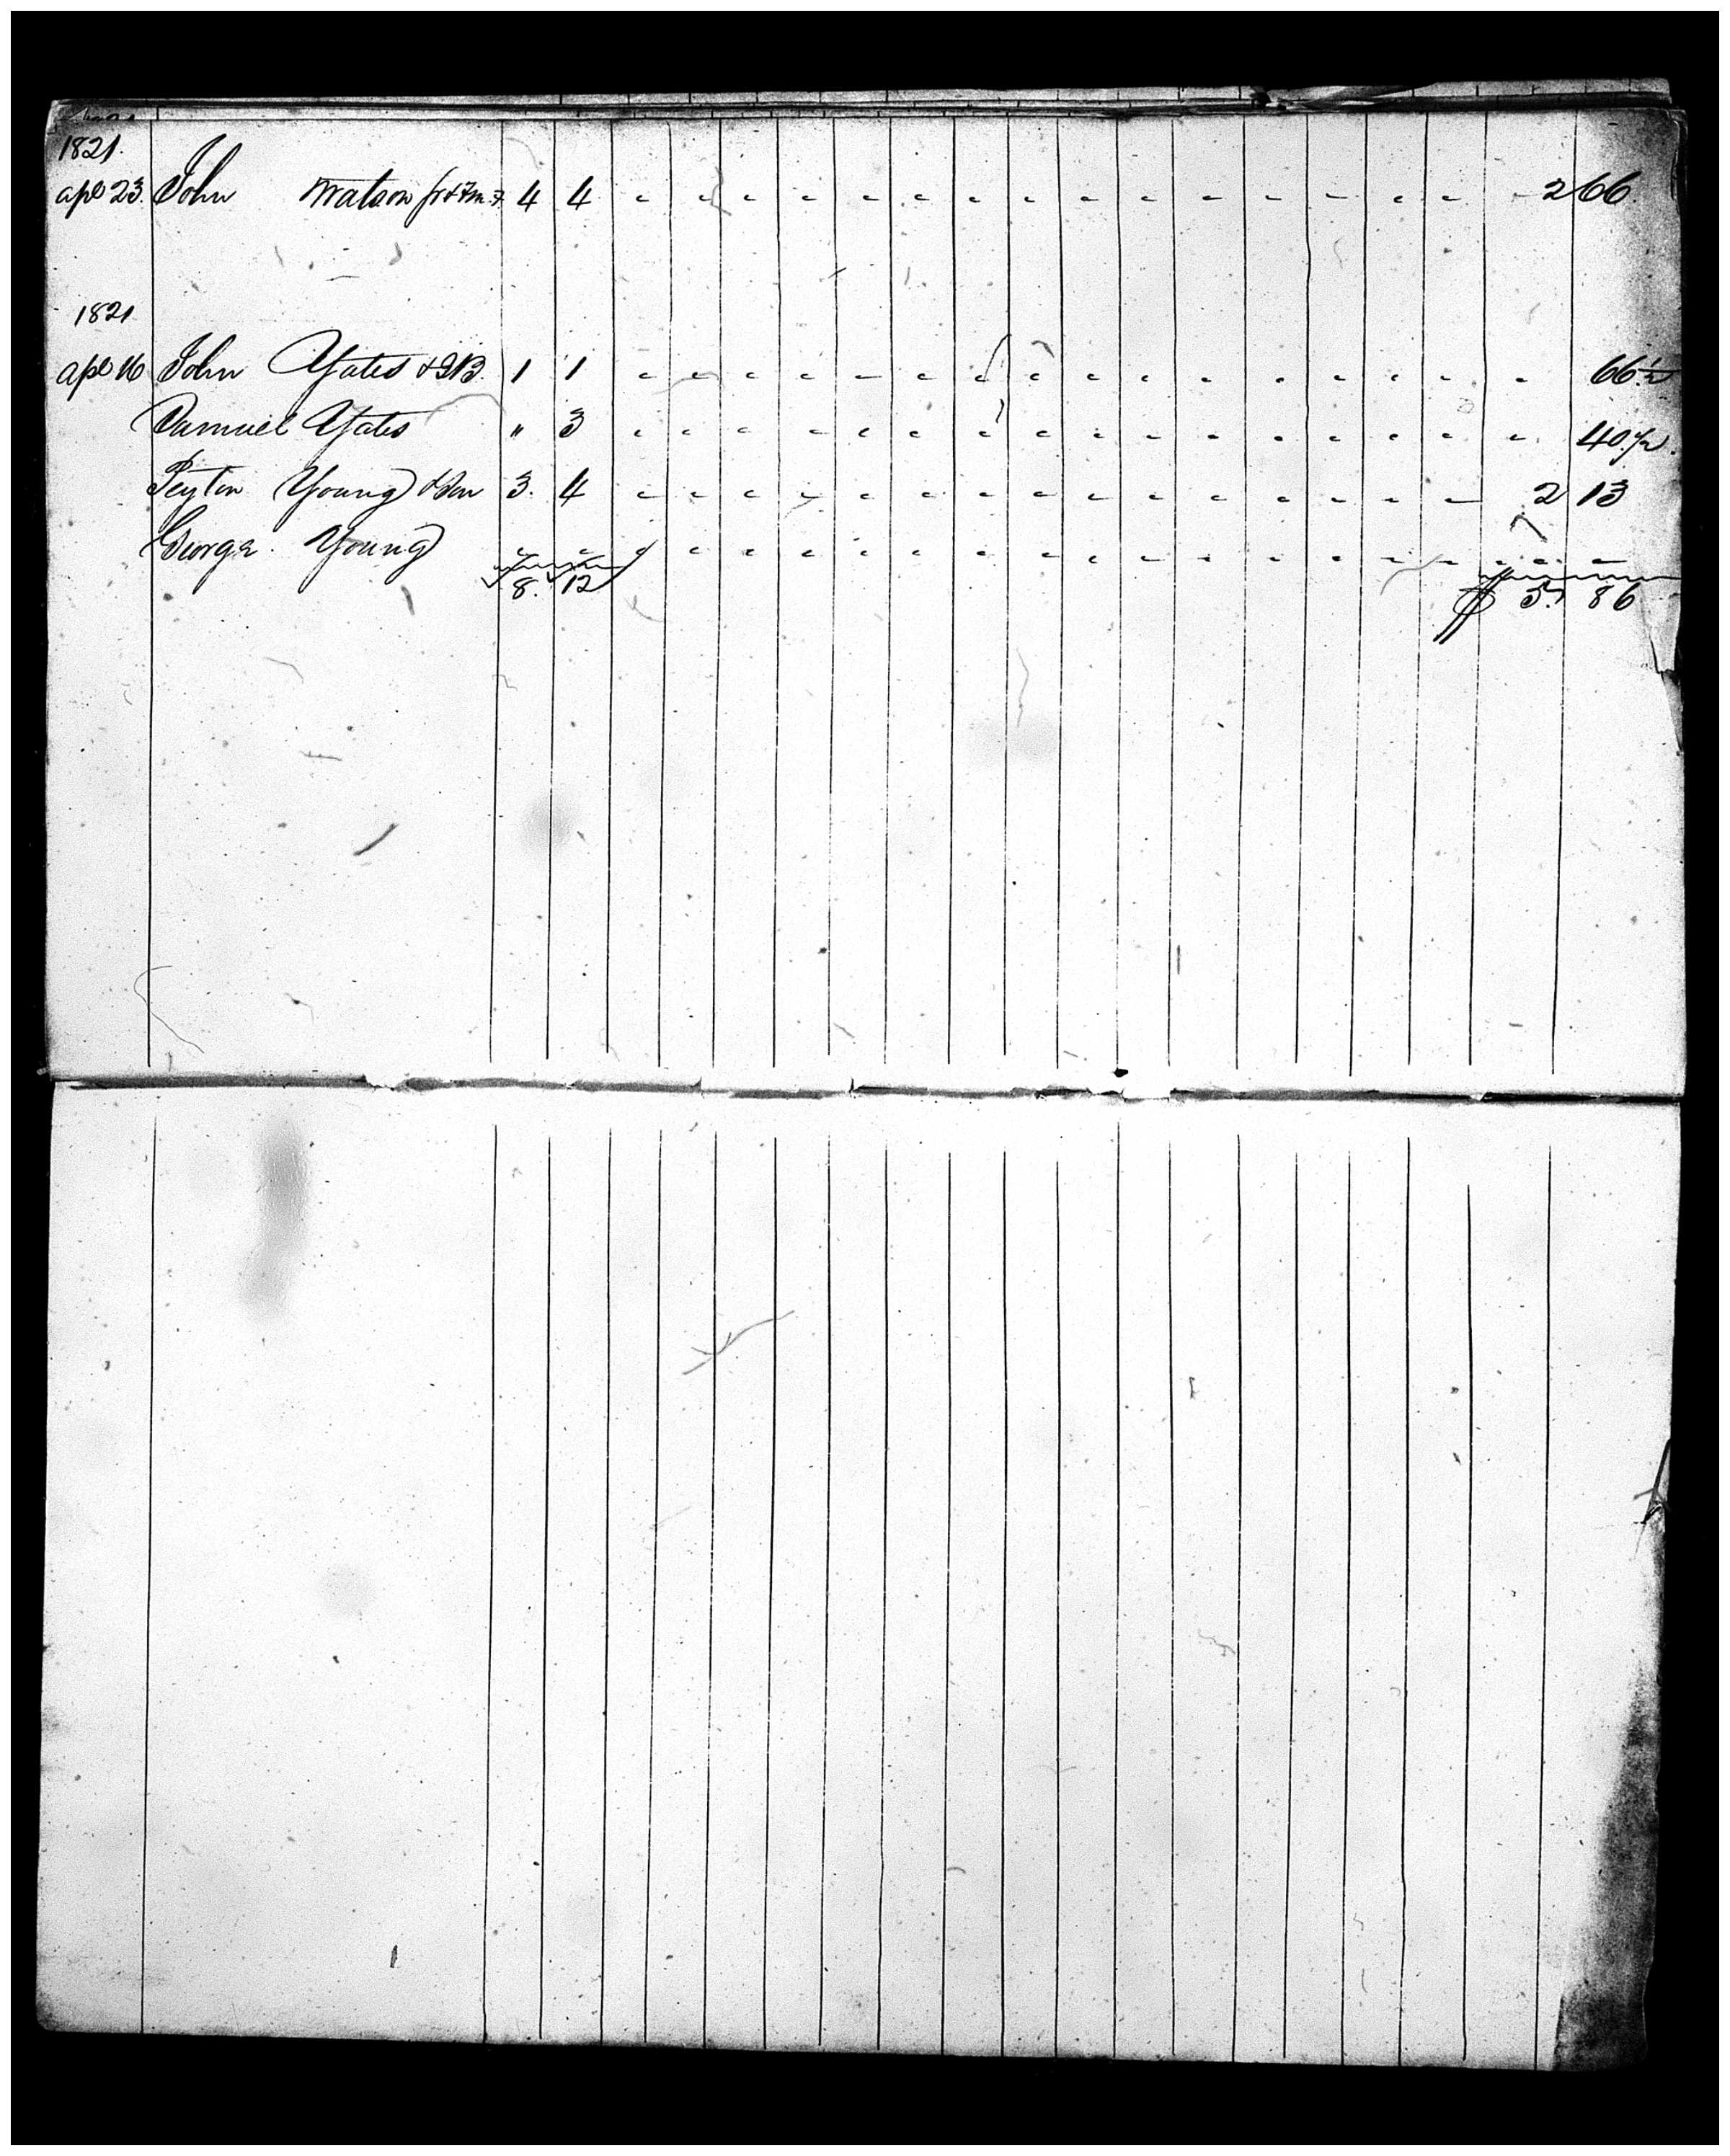 1821.
apl 23. John Watson 4 4 - - - - - - - - - - - - - - - 2 66
1821
apl 16 John Yates & GB. 1 1 - - - - - - - - - - - - - - - - 66 1/2
Samuel Yates " 3 - - - - - - - - - - - - - - - - 40 1/2.
Peyton Young & Son 3. 4 - - - - - - - - - - - - - - - 2 13
George. Young - - - - - - - - - - - - - - - - - - - -
8. 12 $ 5. 86